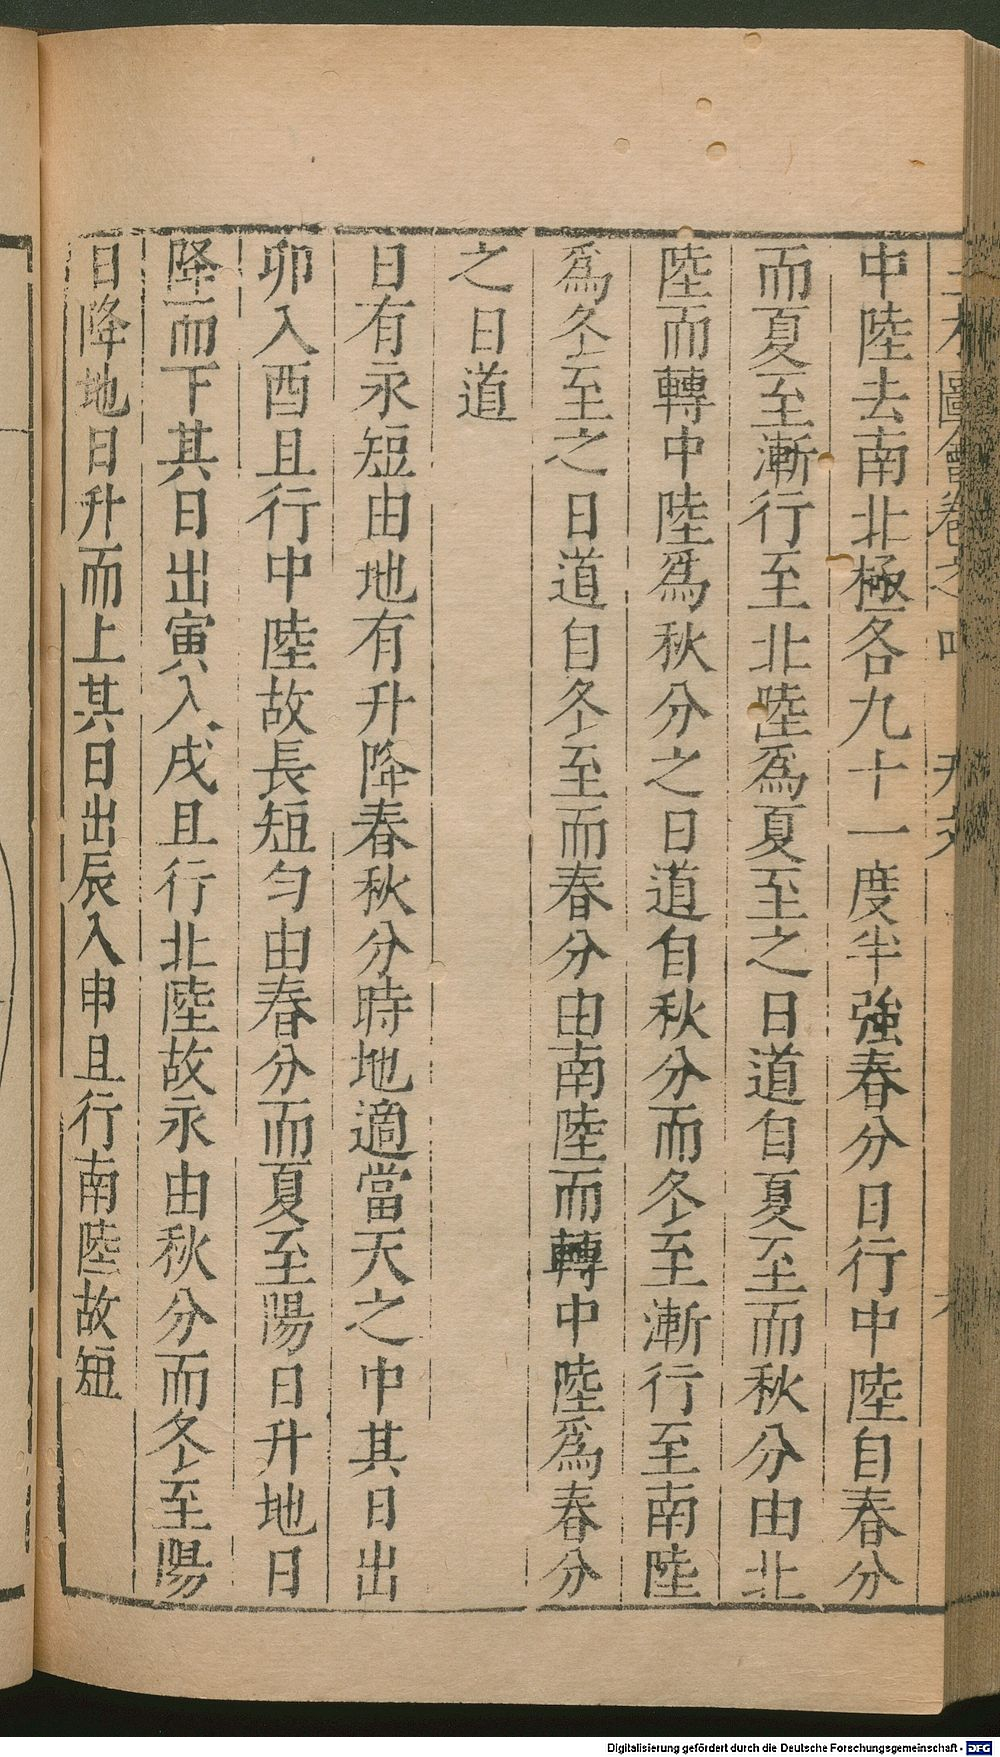 圖會卷之
中陸去南北極各九十一度半強春分日行中陸自春分
而夏至漸行至北陸為夏至之日道自夏至而秋分由北
陸而轉中陸為秋分之日道自秋分而冬至漸行至南陸
為冬至之日道自冬至而春分由南陸而轉中陸為春分
之日道
日有永短由地有升降春秋分時地適當天之中其日出
卯入酉且行中陸故長短勻由春分而夏至陽日升地日
降而下其日出寅入戌且行北陸故永由秋分而冬至陽
日降地日升而上其日出辰入申且行南陸故短
Digitalisierung gefördert durch die Deutsche Forschungsgemeinschaft - DFG